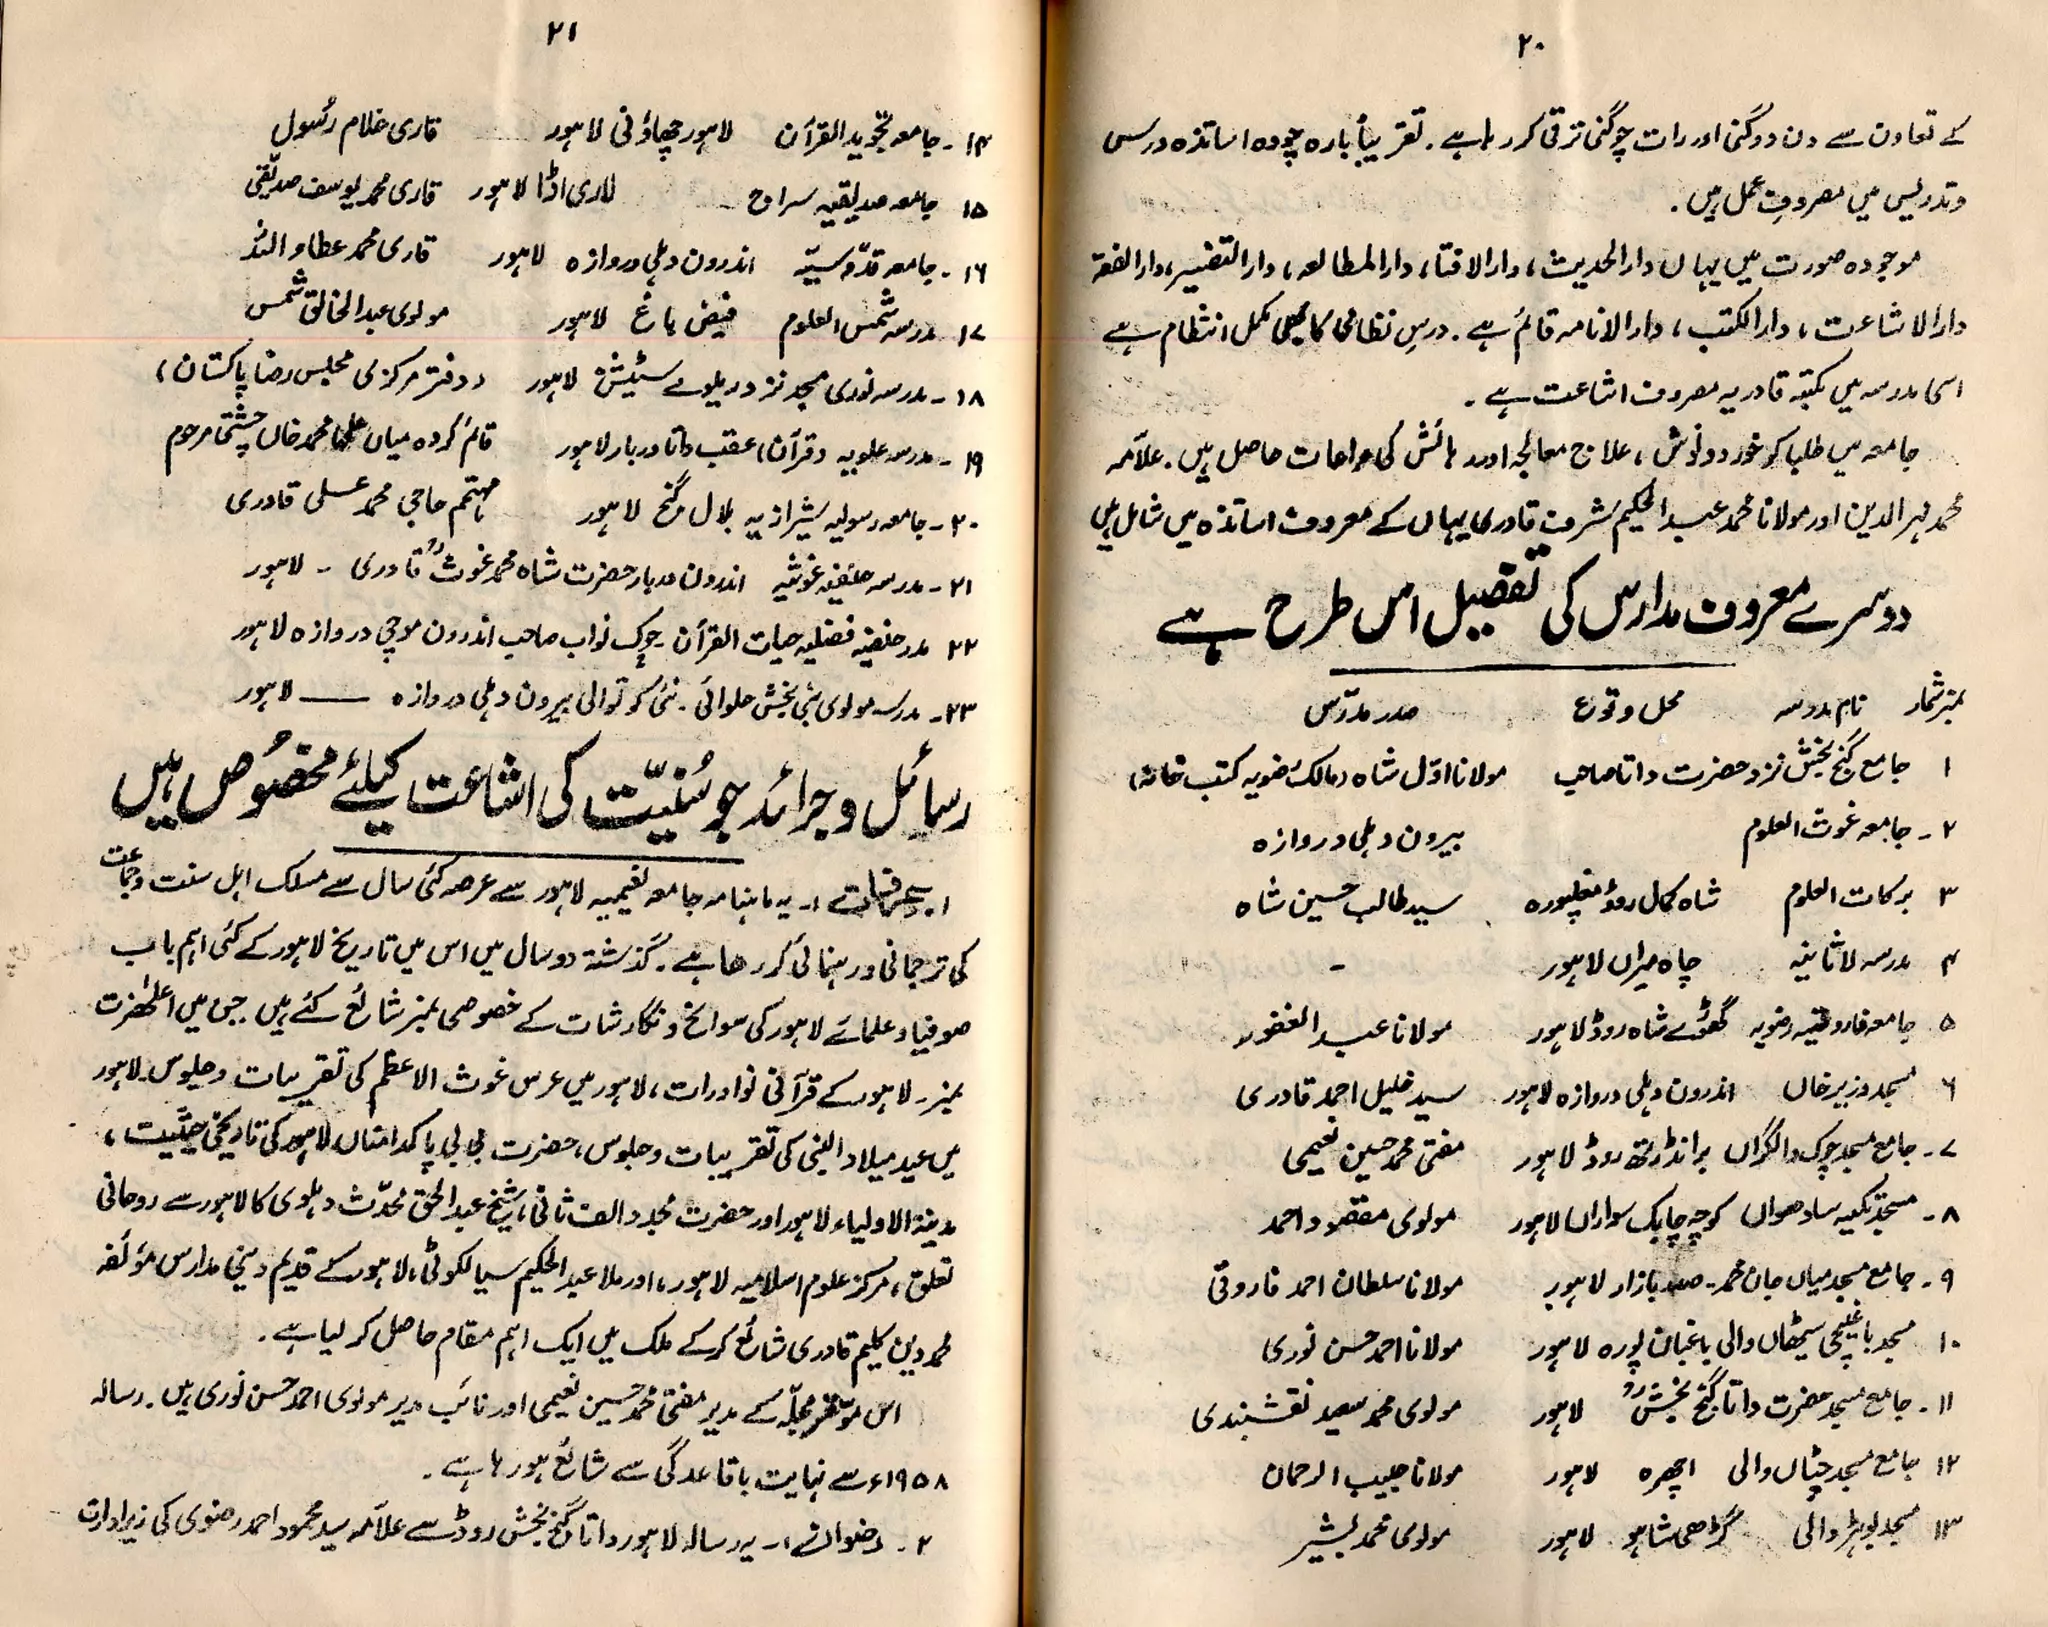 ۲۰
کے تعاون سے دن دوگنی اور رات چوگنی ترقی کر رہا ہے۔ تقریباً بارہ چودہ اساتذہ درس
وتدریس میں مصروفِ عمل ہیں۔
موجودہ صورت میں یہاں دارالحدیث، دارالافتا، دارالمطالعہ، دارالتفسیر، دارالفقہ
دارالاشاعت، دارالکتب، دارالاقامہ قائم ہے۔ درسِ نظامی کا بھی مکمل انتظام ہے
اسی مدرسہ میں مکتبہ قادریہ مصروف اشاعت ہے۔
جامعہ میں طلبا کو خورد ونوش، علاج معالجہ اور رہائش کی مراعات حاصل ہیں۔ علامہ
محمد مہر الدین اور مولانا محمد عبد الحکیم شرف قادری یہاں کے معروف اساتذہ میں شامل ہیں
دوسرے معروف مدارس کی تفصیل اس طرح ہے
نمبر شمار نام مدرسہ محل وقوع صدر مدرّس
۱ جامع گنج بخش نزد حضرت داتا صاحب مولانا اوّل شاہ (مالک رضویہ کتب خانہ)
۲۔ جامعہ غوث العلوم بیرون دہلی دروازہ
۳ برکات العلوم شاہ کمال روڈ مغلپورہ سید طالب حسین شاہ
۴ مدرسہ لاثانیہ چاہ میراں لاہور -
۵ جامعہ فاروقیہ رضویہ گھوڑے شاہ روڈ لاہور مولانا عبد الغفور
۶ مسجد وزیر خاں اندرون دہلی دروازہ لاہور سید خلیل احمد قادری
۷۔ جامع مسجد چوک دالگراں برانڈرتھ روڈ لاہور مفتی محمد حسین نعیمی
۸۔ مسجد تکیہ سادھواں کوچہ چابک سواراں لاہور مولوی مقصود احمد
۹۔ جامع مسجد میاں جان محمد۔ صدر بازار لاہور مولانا سلطان احمد فاروقی
۱۰ مسجد باغیچی سیٹھاں والی باغبان پورہ لاہور مولانا احمد حسن نوری
۱۱۔ جامع مسجد حضرت داتا گنج بخشؒ روڈ لاہور مولوی محمد سعید نقشبندی
۱۲ جامع مسجد چٹاں والی اچھرہ لاہور مولانا حبیب الرحمان
۱۳ مسجد لوہڑ والی گڑھی شاہو لاہور مولوی محمد بشیر
۲۱
۱۴۔ جامعہ تجوید القرآن لاہور چھاؤنی لاہور قاری غلام رسول
۱۵ جامعہ صدیقیہ سراج لاری اڈا لاہور قاری محمد یوسف صدیقی
۱۶۔ جامعہ قدوسیہ اندرون دہلی دروازہ لاہور قاری محمد عطاء اللہ
۱۷۔ مدرسہ شمس العلوم فیض باغ لاہور مولوی عبد الخالق شمس
۱۸۔ مدرسہ نوری مسجد نزد ریلوے سٹیشن لاہور (دفتر مرکزی مجلس رضا پاکستان)
۱۹۔ مدرسہ علویہ (قرآن) عقب داتا دربار لاہور قائم کردہ میاں غلام محمد خاں چشتی مرحوم
۲۰۔ جامعہ رسولیہ شیرازیہ بلال گنج لاہور مہتمم حاجی محمد علی قادری
۲۱۔ مدرسہ حنفیہ غوثیہ اندرون دربار حضرت شاہ محمد غوثؒ قادری - لاہور
۲۲ مدرسہ حنفیہ فضلیہ حیات القرآن۔ چوک نواب صاحب اندرون موچی دروازہ لاہور
۲۳۔ مدرسہ مولوی نبی بخش حلوائی۔ نئی کوتوالی بیرون دہلی دروازہ — لاہور
رسائل و جرائد جو سُنیّت کی اشاعت کیلئے مخصوص ہیں
۱۔ عرفات :۔ یہ ماہنامہ جامعہ نعیمیہ لاہور سے عرصہ کئی سال سے مسلک اہل سنت وجماعت
کی ترجمانی ورہنمائی کر رہا ہے۔ گذشتہ دو سال میں اس میں تاریخ لاہور کے کئی اہم باب
صوفیا و علمائے لاہور کی سوانح و نگارشات کے خصوصی نمبر شائع کئے ہیں جن میں اعلیٰحضرت
نمبر۔ لاہور کے قرآنی نوادرات، لاہور میں عرس غوث الاعظم کی تقریبات و جلوس۔ لاہور
میں عید میلاد النبی کی تقریبات و جلوس، حضرت بی بی پاکدامناں لاہور کی تاریخی حیثیت،
مدینۃ الاولیاء لاہور اور حضرت مجدد الف ثانی، شیخ عبد الحق محدّث دہلوی کا لاہور سے روحانی
تعلق، مرکز علوم اسلامیہ لاہور، اور ملا عبد الحکیم سیالکوٹی، لاہور کے قدیم دینی مدارس مؤلفہ
محمد دین کلیم قادری شائع کر کے ملک میں ایک اہم مقام حاصل کر لیا ہے۔
اس موقر مجلّہ کے مدیر مفتی محمد حسین نعیمی اور نائب مدیر مولوی احمد حسن نوری ہیں۔ رسالہ
۱۹۵۸ء سے نہایت باقاعدگی سے شائع ہو رہا ہے۔
۲۔ رضوان :۔ یہ رسالہ لاہور داتا گنج بخش روڈ سے علامہ سید محمود احمد رضوی کی زیر ادارت